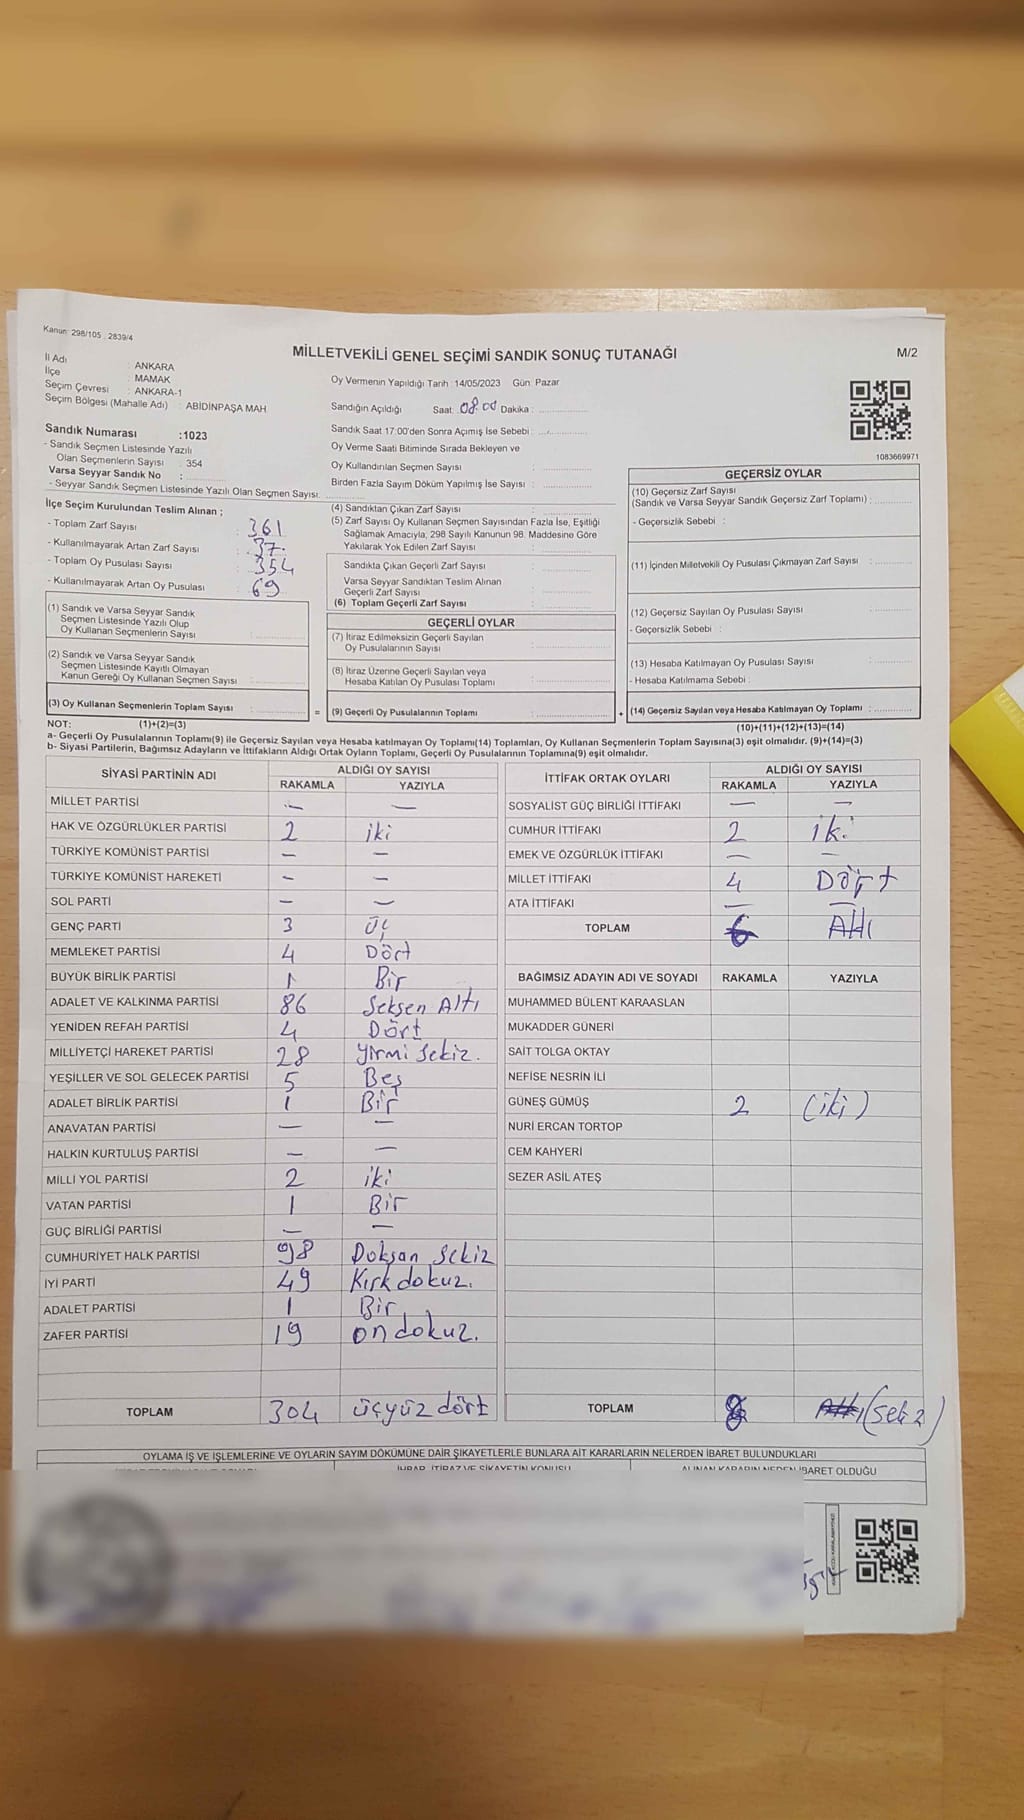 Kanun: 298/105 : 2839/4
MİLLETVEKİLİ GENEL SEÇİMİ SANDIK SONUÇ TUTANAĞI
M/2
İl Adı : ANKARA
İlçe : MAMAK
Seçim Çevresi : ANKARA-1
Seçim Bölgesi (Mahalle Adı) : ABİDİNPAŞA MAH
Sandık Numarası :1023
- Sandık Seçmen Listesinde Yazılı
Olan Seçmenlerin Sayısı : 354
Varsa Seyyar Sandık No :
- Seyyar Sandık Seçmen Listesinde Yazılı Olan Seçmen Sayısı:
İlçe Seçim Kurulundan Teslim Alınan ;
- Toplam Zarf Sayısı : 361
- Kullanılmayarak Artan Zarf Sayısı : 37
- Toplam Oy Pusulası Sayısı : 354
- Kullanılmayarak Artan Oy Pusulası : 69
(1) Sandık ve Varsa Seyyar Sandık
Seçmen Listesinde Yazılı Olup
Oy Kullanan Seçmenlerin Sayısı :
(2) Sandık ve Varsa Seyyar Sandık
Seçmen Listesinde Kayıtlı Olmayan
Kanun Gereği Oy Kullanan Seçmen Sayısı :
(3) Oy Kullanan Seçmenlerin Toplam Sayısı :
Oy Vermenin Yapıldığı Tarih : 14/05/2023 Gün: Pazar
Sandığın Açıldığı Saat: 08:00 Dakika :
Sandık Saat 17:00'den Sonra Açımış İse Sebebi :
Oy Verme Saati Bitiminde Sırada Bekleyen ve
Oy Kullandırılan Seçmen Sayısı :
Birden Fazla Sayım Döküm Yapılmış İse Sayısı :
(4) Sandıktan Çıkan Zarf Sayısı :
(5) Zarf Sayısı Oy Kullanan Seçmen Sayısından Fazla İse, Eşitliği
Sağlamak Amacıyla, 298 Sayılı Kanunun 98. Maddesine Göre
Yakılarak Yok Edilen Zarf Sayısı :
Sandıkta Çıkan Geçerli Zarf Sayısı :
Varsa Seyyar Sandıktan Teslim Alınan
Geçerli Zarf Sayısı :
(6) Toplam Geçerli Zarf Sayısı :
GEÇERLİ OYLAR
(7) İtiraz Edilmeksizin Geçerli Sayılan
Oy Pusulalarının Sayısı :
(8) İtiraz Üzerine Geçerli Sayılan veya
Hesaba Katılan Oy Pusulası Toplamı :
= (9) Geçerli Oy Pusulalarının Toplamı :
1083669971
GEÇERSİZ OYLAR
(10) Geçersiz Zarf Sayısı
(Sandık ve Varsa Seyyar Sandık Geçersiz Zarf Toplamı) :
- Geçersizlik Sebebi :
(11) İçinden Milletvekili Oy Pusulası Çıkmayan Zarf Sayısı :
(12) Geçersiz Sayılan Oy Pusulası Sayısı :
- Geçersizlik Sebebi :
(13) Hesaba Katılmayan Oy Pusulası Sayısı :
- Hesaba Katılmama Sebebi :
+ (14) Geçersiz Sayılan veya Hesaba Katılmayan Oy Toplamı :
NOT: (1)+(2)=(3) (10)+(11)+(12)+(13)=(14)
a- Geçerli Oy Pusulalarının Toplamı(9) ile Geçersiz Sayılan veya Hesaba katılmayan Oy Toplamı(14) Toplamları, Oy Kullanan Seçmenlerin Toplam Sayısına(3) eşit olmalıdır. (9)+(14)=(3)
b- Siyasi Partilerin, Bağımsız Adayların ve İttifakların Aldığı Ortak Oyların Toplamı, Geçerli Oy Pusulalarının Toplamına(9) eşit olmalıdır.
SİYASİ PARTİNİN ADI ALDIĞI OY SAYISI
RAKAMLA YAZIYLA
MİLLET PARTİSİ — —
HAK VE ÖZGÜRLÜKLER PARTİSİ 2 iki
TÜRKİYE KOMÜNİST PARTİSİ — —
TÜRKİYE KOMÜNİST HAREKETİ — —
SOL PARTİ — —
GENÇ PARTİ 3 Üç
MEMLEKET PARTİSİ 4 Dört
BÜYÜK BİRLİK PARTİSİ 1 Bir
ADALET VE KALKINMA PARTİSİ 86 Seksen Altı
YENİDEN REFAH PARTİSİ 4 Dört
MİLLİYETÇİ HAREKET PARTİSİ 28 yirmi sekiz.
YEŞİLLER VE SOL GELECEK PARTİSİ 5 Beş
ADALET BİRLİK PARTİSİ 1 Bir
ANAVATAN PARTİSİ — —
HALKIN KURTULUŞ PARTİSİ — —
MİLLİ YOL PARTİSİ 2 iki
VATAN PARTİSİ 1 Bir
GÜÇ BİRLİĞİ PARTİSİ — —
CUMHURİYET HALK PARTİSİ 98 Doksan sekiz
İYİ PARTİ 49 Kırk dokuz.
ADALET PARTİSİ 1 Bir
ZAFER PARTİSİ 19 on dokuz.
TOPLAM 304 üçyüz dört
İTTİFAK ORTAK OYLARI ALDIĞI OY SAYISI
RAKAMLA YAZIYLA
SOSYALİST GÜÇ BİRLİĞİ İTTİFAKI — —
CUMHUR İTTİFAKI 2 iki
EMEK VE ÖZGÜRLÜK İTTİFAKI — —
MİLLET İTTİFAKI 4 Dört
ATA İTTİFAKI — —
TOPLAM 6 Altı
BAĞIMSIZ ADAYIN ADI VE SOYADI RAKAMLA YAZIYLA
MUHAMMED BÜLENT KARAASLAN
MUKADDER GÜNERİ
SAİT TOLGA OKTAY
NEFİSE NESRİN İLİ
GÜNEŞ GÜMÜŞ 2 (iki)
NURİ ERCAN TORTOP
CEM KAHYERİ
SEZER ASİL ATEŞ
TOPLAM 8 Altı (sekiz)
OYLAMA İŞ VE İŞLEMLERİNE VE OYLARIN SAYIM DÖKÜMÜNE DAİR ŞİKAYETLERLE BUNLARA AİT KARARLARIN NELERDEN İBARET BULUNDUKLARI
İHBAR, İTİRAZ VE ŞİKAYETİN KONUSU ALINAN KARARIN NEDEN İBARET OLDUĞU